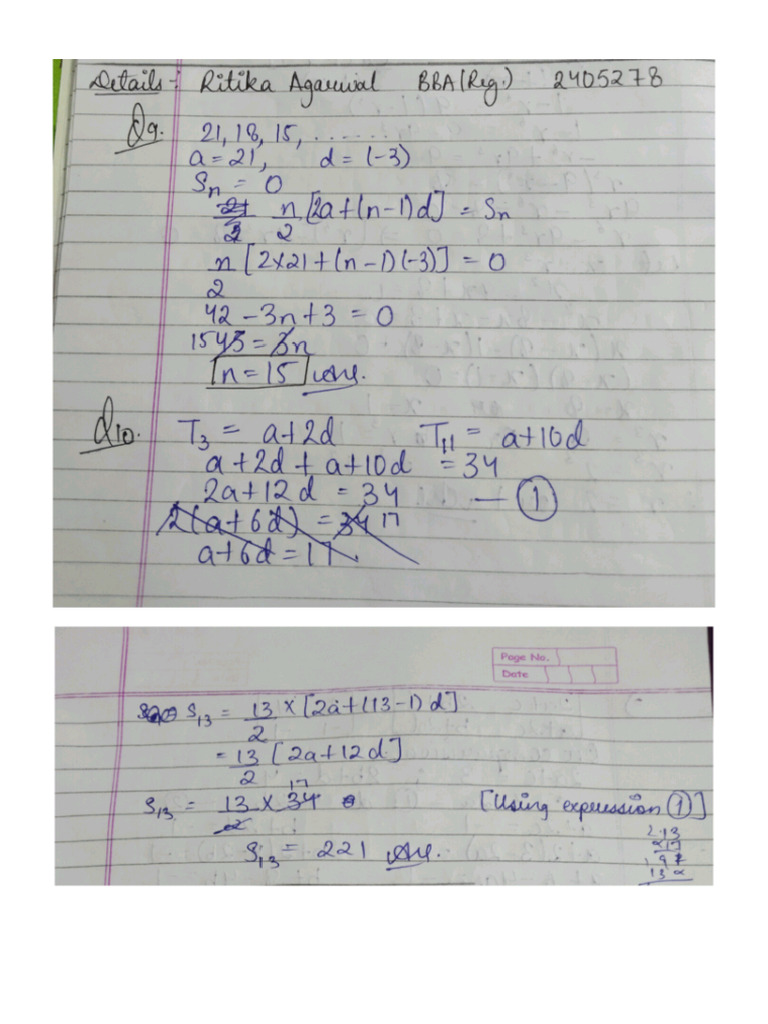 Details :- Ritika Agarwal BBA (Reg.) 2405278
Q9. 21, 18, 15, .......
a = 21, d = (-3)
Sn = 0
n/2 [2a + (n-1)d] = Sn
n/2 [2×21 + (n-1)(-3)] = 0
42 - 3n + 3 = 0
15 45 = 3n
n = 15 Ans.
Q10. T3 = a+2d T11 = a+10d
a + 2d + a + 10d = 34
2a + 12d = 34 — ①
2(a + 6d) = 34 17
a + 6d = 17
Page No.
Date
S13 = 13/2 × [2a + (13-1) d]
= 13/2 [2a + 12d]
17
S13 = 13/2 × 34 [Using expression ①]
S13 = 221 Ans.